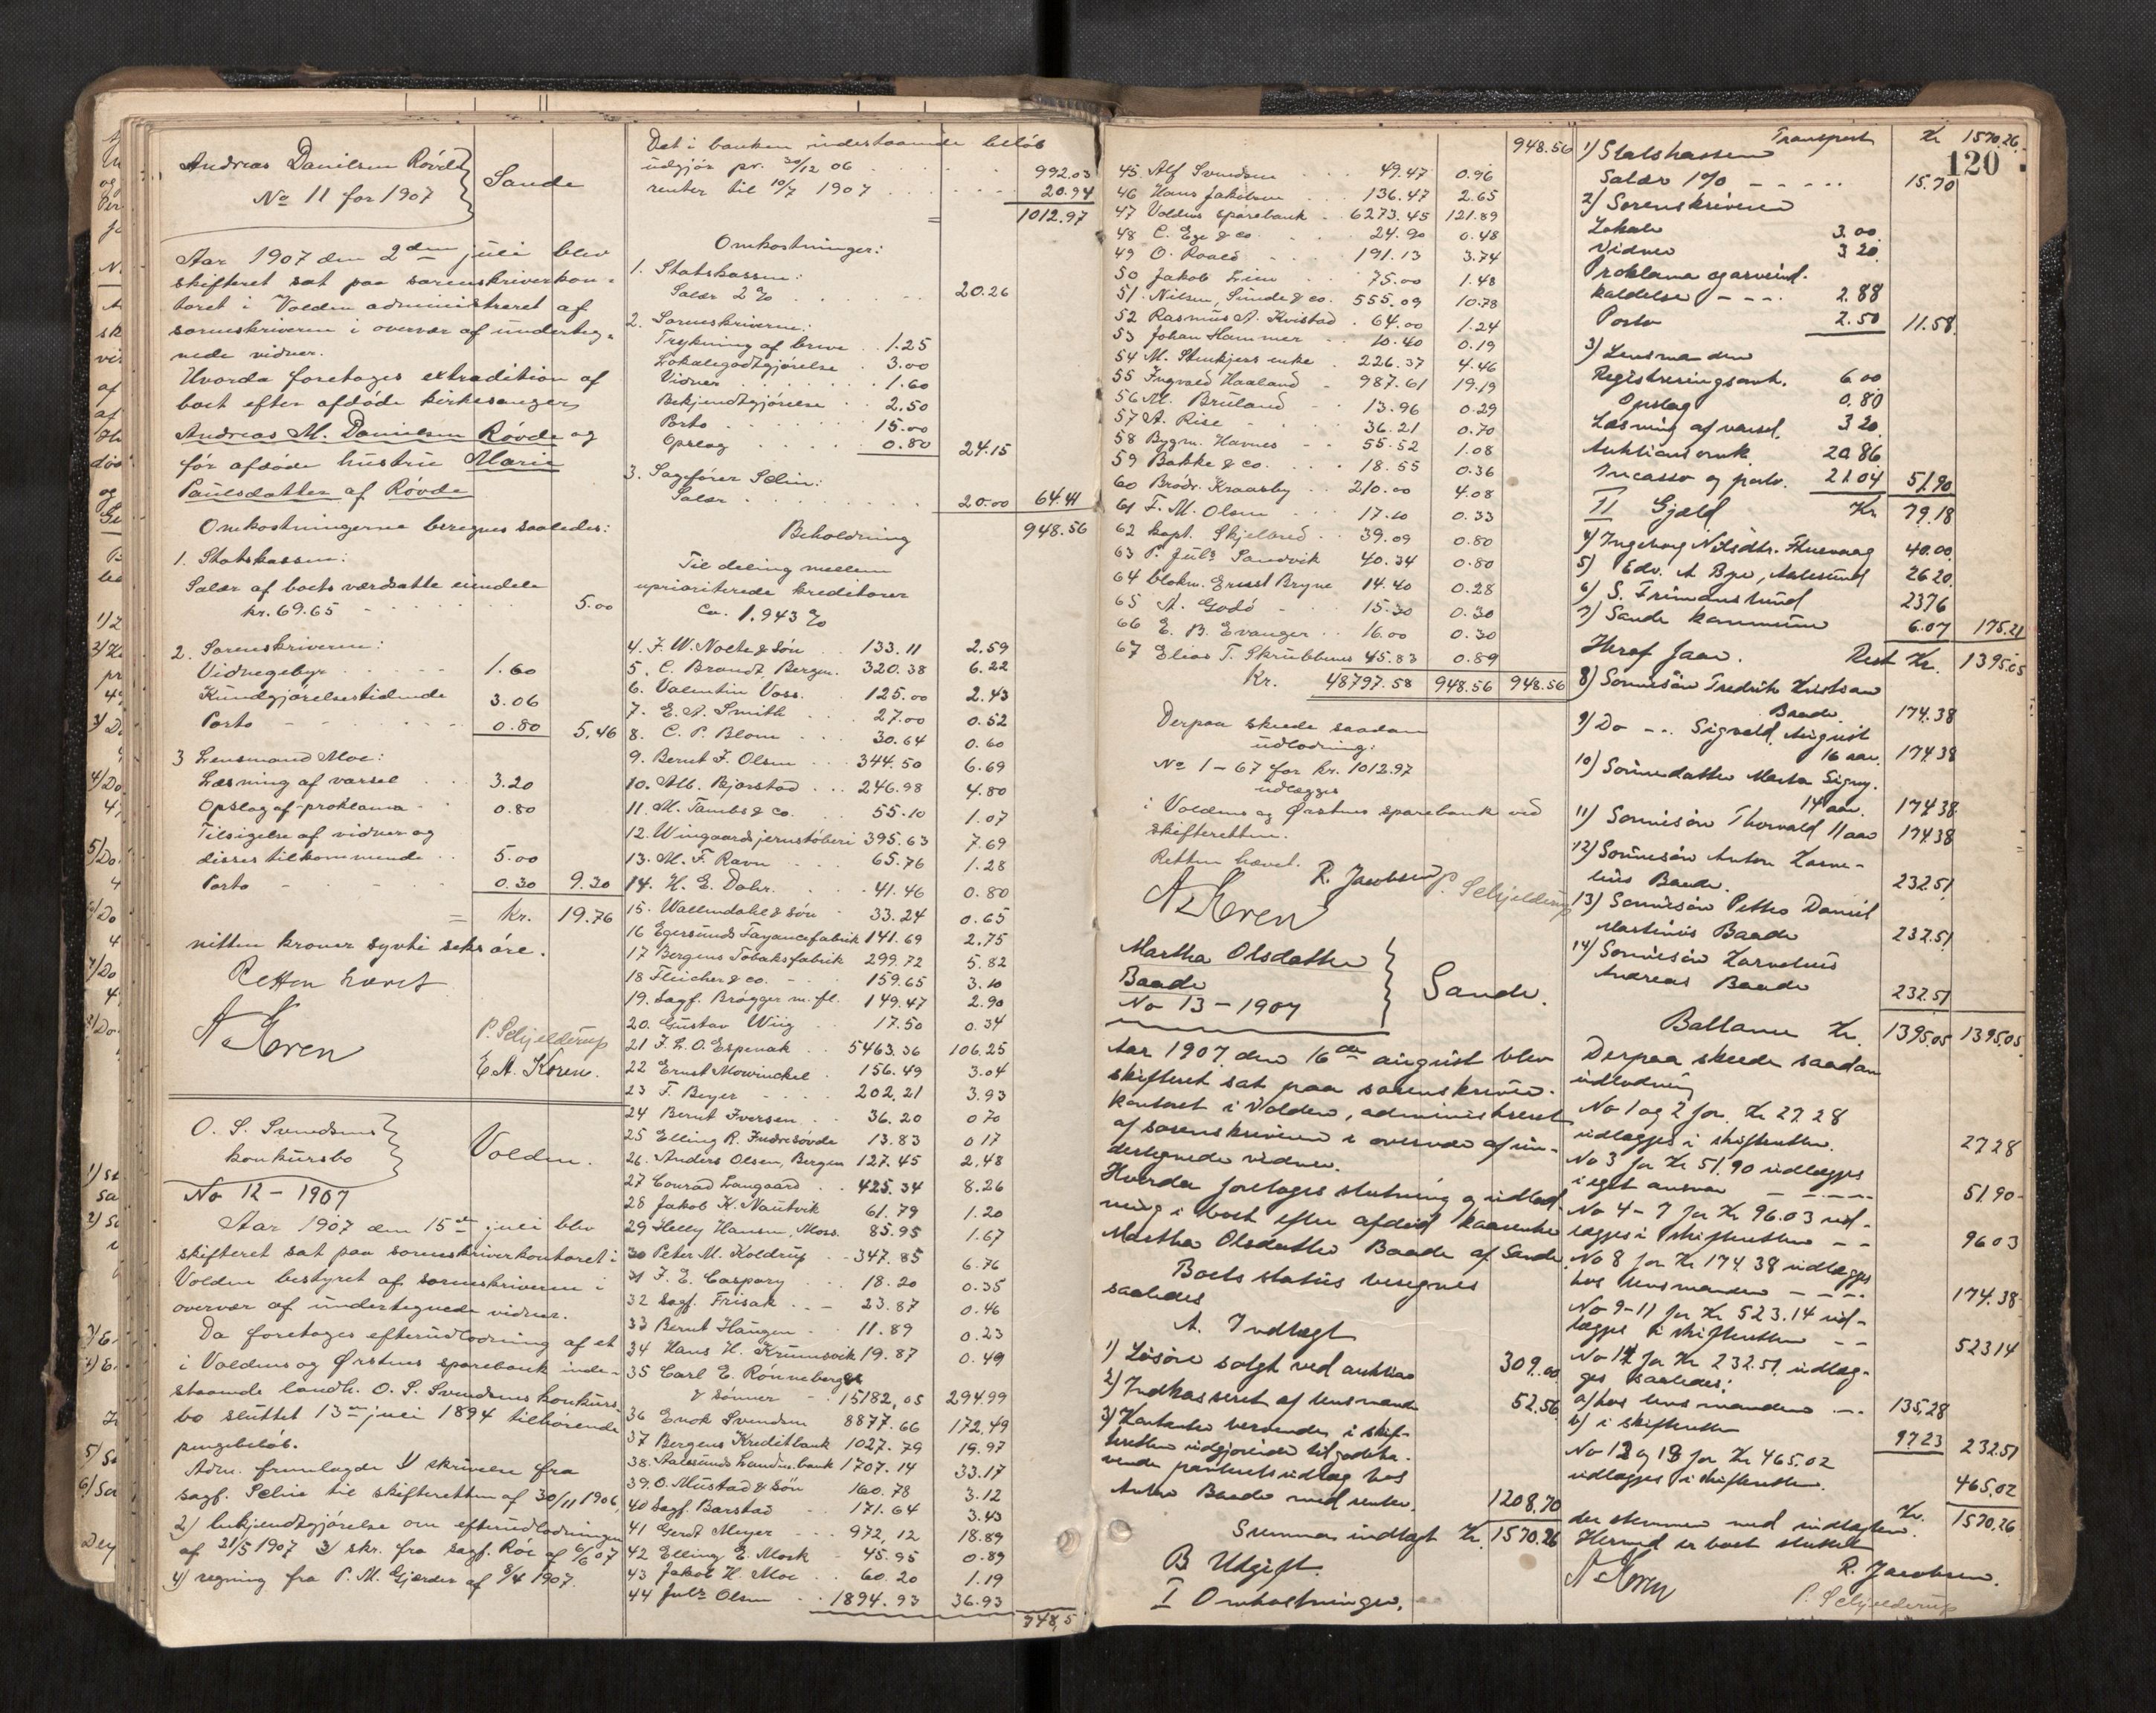 Andreas Danilsen Røvde
No 11 for 1907
Sande
Aar 1907 den 2den juli blev
skifteret sat paa sorenskriverkon-
toret i Volden administreret af
sorenskriveren i overvær af underteg-
nede vidner.
Hvorda foretoges extradition af
boet efter afdøde kirkesanger
Andreas M. Danielsen Røvde og
før afdøde hustru Marie
Paulsdatter af Røvde
Omkostningerne beregnes saaledes:
1. Statskassen:
Salær af boets værdsatte eiendele
kr. 69.65 - - - - 5.00
2. Sorenskriveren:
Vidnegebyr - - - - 1.60
Kundgjørelsestidende 3.06
Porto - - - - 0.80 5.46
3 Lensmand Moe:
Læsning af varsel . . 3.20
Opslag af proklama - 0.80
Tilsigelse af vidner og
disses tilkommende . . 5.00
Porto - - - - 0.30 9.30
= kr. 19.76
nitten kroner sytti seks øre.
Retten hævet
A Koren
P. Schjelderup
E. A. Koren.
O. S. Svendsens
konkursbo
No 12 - 1907
Volden.
Aar 1907 den 15de juli blev
skifteret sat paa sorenskriverkontoret i
Volden bestyret af sorenskriveren i
overvær af undertegnede vidner.
Da foretoges efterudlodning af et
i Voldens og Ørstens sparebank inde-
staaende landh. O. S. Svendsens konkurs-
bo sluttet 13de juli 1894 tilhørende
pengebeløb.
Adm. fremlagde 1) skrivelse fra
sagf. Selin til skifteretten af 30/11 1906,
2) bekjendtgjørelse om efterudlodningen
af 21/5 1907 3) skr. fra sagf. Röe af 6/6 07
4) regning fra P. M. Gjærder af 8/4 1907.
Det i banken indestaaende beløb
udgjør pr. 30/12 06 . . . . 992.03
renter til 10/7 1907 . . . . 20.94
= 1012.97
Omkostninger:
1. Statskassen:
Salær 2 % . . . . 20.26
2. Sorenskriveren:
Trykning af breve . . 1.25
Lokalegodtgjørelse . 3.00
Vidner . . . . 1.60
Bekjendtgjørelse . . 2.50
Porto . . . . 15.00
Opslag . . . . 0.80 24.15
3. Sagfører Selin:
Salær . . . . 20.00 64.41
Beholdning 948.56
Til deling mellem
uprioriterede kreditorer
ca. 1.943 %
4. J. W. Nolte & Søn . . 133.11 2.59
5. C. Brandt, Bergen. 320.38 6.22
6. Valentin Voss. . . 125.00 2.43
7. E. A. Smith . . . 27.00 0.52
8. C. P. Blom . . . 30.64 0.60
9. Bernt J. Olsen . . . 344.50 6.69
10. Alb. Bjørstad . . . 246.98 4.80
11. M. Tambs & co. . . 55.10 1.07
12. Wingaards jernstøberi 395.63 7.69
13. M. F. Ravn . . . 65.76 1.28
14. H. E. Dahr. . . . 41.46 0.80
15. Wallendahl & søn . 33.24 0.65
16 Egersunds Fayancefabrik 141.69 2.75
17 Bergens Tobaksfabrik 299.72 5.82
18 Fleicher & co. - - 159.65 3.10
19. Sagf. Brøgger m. fl. 149.47 2.90
20. Gustav Wiig . . 17.50 0.34
21 J. L. O. Espenak . . 5463.36 106.25
22 Ernst Mowinckel . 156.49 3.04
23 F. Beyer - - - - 202.21 3.93
24 Bernt Iversen . . 36.20 0 70
25 Elling R. Indresøvde 13.83 0 17
26. Anders Olsen, Bergen 127.45 2.48
27 Conrad Langaard . . 425.34 8.26
28 Jakob K. Nautvik 61.79 1.20
29 Helly Hansen, Moss. 85.95 1.67
30 Peter M. Koldrup - - 347.85 6.76
31 J. E. Caspary . . . 18.20 0.35
32 Sagf. Frisak . . - 23.87 0.46
33 Bernt Haugen - - 11.89 0.23
34 Hans H. Krumsvik 19.87 0.49
35 Carl E. Rønneberg
& Sønner - - 15182,05 294.99
36 Enok Svendsen 8877.66 172,49
37 Bergens Kreditbank 1027.79 19.97
38. Aalesunds Landm. bank 1707.14 33.17
39. O. Mustad & Søn 160.78 3.12
40 Sagf. Barstad - 171.64 3.43
41 Gerdt Meyer - - - 972.12 18.89
42 Elling E. Mork - 45.95 0.89
43 Jakob H. Moe . . 60.20 1.19
44 Juls Olsen . . 1894.93 36.93
948,5
120
948.56
45. Alf Svendsen . . . 49.47 0.96
46 Hans Jakobsen . . . 136.47 2.65
47 Voldens sparebank . . 6273.45 121.89
48 C. Ege & co. . . . 24.90 0.48
49 O. Raald - - - 191.13 3.74
50 Jakob Lien . . . 75.00 1.48
51. Nilsen, Sunde & co. 555.09 10.78
52 Rasmus A. Kvistad . 64.00 1.24
53 Johan Hammer . . 10.40 0.19
54 M. Stenkjers enke . 226.37 4.46
55 Ingvald Haaland - 987.61 19.19
56 M. Bruland - - 13.96 0.29
57 A. Rise - - . 36.21 0.70
58 Bygm. Havnes - - 55.52 1.08
59 Bakke & co. . . . 18.55 0.36
60 Brødr. Kraasby . . 210.00 4.08
61 F. M. Olsen . . . 17.10 0.33
62 kapt. Skjelbred . . 39.09 0.80
63 P. Juls Sandvik 40.34 0.80
64 blokm. Ernst Bryne 14.40 0.28
65 A. Godø - - 15.30 0.30
66 E. B. Evanger . . 16.00 0.30
67 Elias T. Skrubbenes 45.83 0.89
Kr. 48797.58 948.56 948.56
Derpaa skeede saadan
udlodning:
No 1 - 67 for kr. 1012.97
udlægges
i Voldens og Ørstens sparebank ved
skifteretten.
Retten hævet.
A Koren
R. Jacobsen
P. Schjelderup
Martha Olsdatter
Baade
No 13 - 1907
Sande.
Aar 1907 den 16de august blev
skifteret sat paa sorenskriver-
kontoret i Volden, administreret
af sorenskriveren i overvær af un-
dertegnede vidner.
Hvorda foretoges slutning og udlod-
ning i boet efter afdød kaarenke
Martha Olsdatter Baade af Sande.
Boets status beregnes
saaledes
A. Indtægt
1) Løsøre solgt ved auktion 309.00
2) Indkasseret af lensmanden 52.56
3) Kontanter beroende i skif-
teretten udgjørende tilgodeha-
vende paahvilsudlæg hos
Anton Baade med renter. 1208.70
Summa indtægt Kr. 1570.26
B Udgift.
I Omkostninger.
Transport Kr 1570.26.
1) Statskassen
Salær 1 % - - - - 15.70
2) Sorenskriveren
Lokale 3.00
Vidner 3 20
Proklama og arveind-
kaldelse - - - 2.88
Porto 2.50 11.58
3) Lensmanden
Registreringsomk. 6.00
Opslag 0.80
Læsning af varsel. 3 20
Auktionsomk 20.86
Incasso og porto. 21.04 51.90
II Gjæld Kr 79.18
4) Ingeborg Nilsdtr. 40.00
5) Edv. A Bye, Aalesund 26 20.
6) S. Frimanslund 23 76
7) Sande kommune 6.07 175.21
Heraf faar. Rest Kr. 1395.05
8) Sønnesøn Fredrik Kristian
Baade. 174.38
9) Do - - Sigvald August
16 aar. 174.38
10) Sønnedatter Marta Signy.
14 aar. 174.38
11) Sønnesøn Thorvald 11 aar 174.38
12) Sønnesøn Anton Korne-
lius Baade. 232.51
13) Sønnesøn Petter Daniel
Martinus Baade 232.51
14) Sønnesøn Kornelius
Andreas Baade 232.51
Ballance Kr. 1395.05 1395.05
Derpaa skeede saadan
udlodning
No 1 og 2 for Kr 27.28
udlægges i skifteretten. 27 28
No 3 for Kr 51.90 udlægges
i eget ansvar - - - - 51.90 -
No 4 - 7 for Kr 96.03 ud-
lægges i skifteretten - - 96 03
No 8 for Kr 174 38 udlægges
hos lensmanden - - - 174.38
No 9-11 for Kr 523.14 ud-
lægges i skifteretten - - 523 14
No 14 for Kr 232.51 udlæg-
ges saaledes:
a) hos lensmanden - . 135,28
b) i skifteretten 97 23 232.51
No 12 og 13 for Kr 465.02
udlægges i skifteretten. 465,02
der stemmer med indtægten. Kr. 1570.26
Hermed er boet sluttet
A Koren
R. Jacobsen.
P. Schjelderup